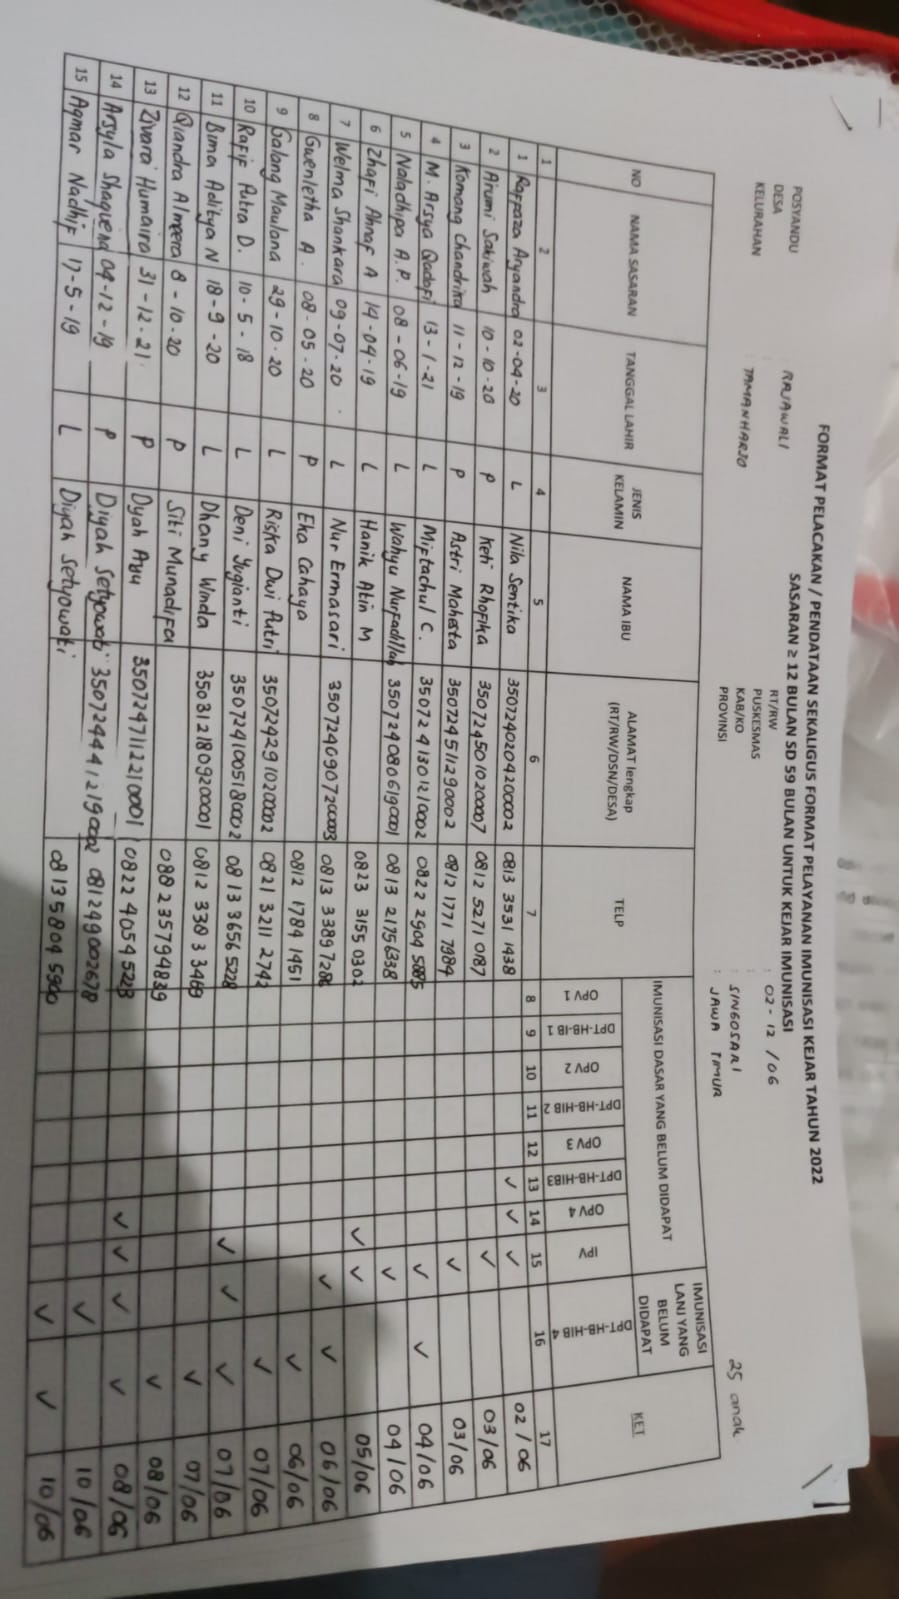 FORMAT PELACAKAN / PENDATAAN SEKALIGUS FORMAT PELAYANAN IMUNISASI KEJAR TAHUN 2022
SASARAN ≥ 12 BULAN SD 59 BULAN UNTUK KEJAR IMUNISASI
POSYANDU RAJAWALI RT/RW : 02-12 /06
DESA PUSKESMAS :
KELURAHAN : TAMANHARJO KAB/KO : SINGOSARI 25 anak
PROVINSI : JAWA TIMUR
NO NAMA SASARAN TANGGAL LAHIR JENIS KELAMIN NAMA IBU ALAMAT lengkap (RT/RW/DSN/DESA) TELP IMUNISASI DASAR YANG BELUM DIDAPAT IMUNISASI LANJ YANG BELUM DIDAPAT KET
OPV 1 DPT-HB-IB 1 OPV 2 DPT-HB-HIB 2 OPV 3 DPT-HB-HIB3 OPV 4 IPV DPT-HB-HIB 4
1 2 3 4 5 6 7 8 9 10 11 12 13 14 15 16 17
1 Raffaza Aryandra 02-04-20 L Nila Sentika 3507240204200002 0813 3531 1438 ✓ ✓ ✓ 02/06
2 Arumi Sakiwah 10-10-20 P Keti Rhofika 3507245010200007 0812 5271 0187 ✓ 03/06
3 Komang Chandrika 11-12-19 P Astri Mahesta 350724511290002 0812 1771 7984 ✓ 03/06
4 M. Arsya Qadafi 13-1-21 L Miftachul C. 3507241301210002 0822 2904 ✓ ✓ 04/06
5 Naladhipa A.P. 08-06-19 L Wahyu Nurfadillah 3507240806190001 0813 21756338 ✓ 04/06
6 Zhafi Ahnaf A 14-04-19 L Hanik Atin M 0823 3155 0302 ✓ ✓ 05/06
7 Welma Shankara 09-07-20 L Nur Ermasari 3507240907200003 0813 33897286 ✓ ✓ 06/06
8 Gwenletha A. 08-05-20 P Eka Cahaya 0812 1784 1451 ✓ 06/06
9 Galang Maulana 29-10-20 L Riska Dwi Putri 3507242910200002 0821 3211 2742 ✓ 07/06
10 Rafif Putra D. 10-5-18 L Deni Yugianti 3507241005180002 0813 3656 5228 ✓ ✓ ✓ 07/06
11 Bima Aditya N 18-9-20 L Dhany Winda 3503121809200001 0812 3383 3469 ✓ 07/06
12 Qiandra Almeera 8-10-20 P Siti Munadifa 088 235794839 ✓ 08/06
13 Zivara Humaira 31-12-21 P Dyah Ayu 3507247112210001 0822 4054 5223 ✓ ✓ ✓ ✓ 08/06
14 Arsyla Shaquena 04-12-19 P Diyah Setyowati 3507244412190002 081249002678 ✓ 10/06
15 Aqmar Nadhif 17-5-19 L Diyah Setyowati 0813 5804 5900 ✓ ✓ 10/06